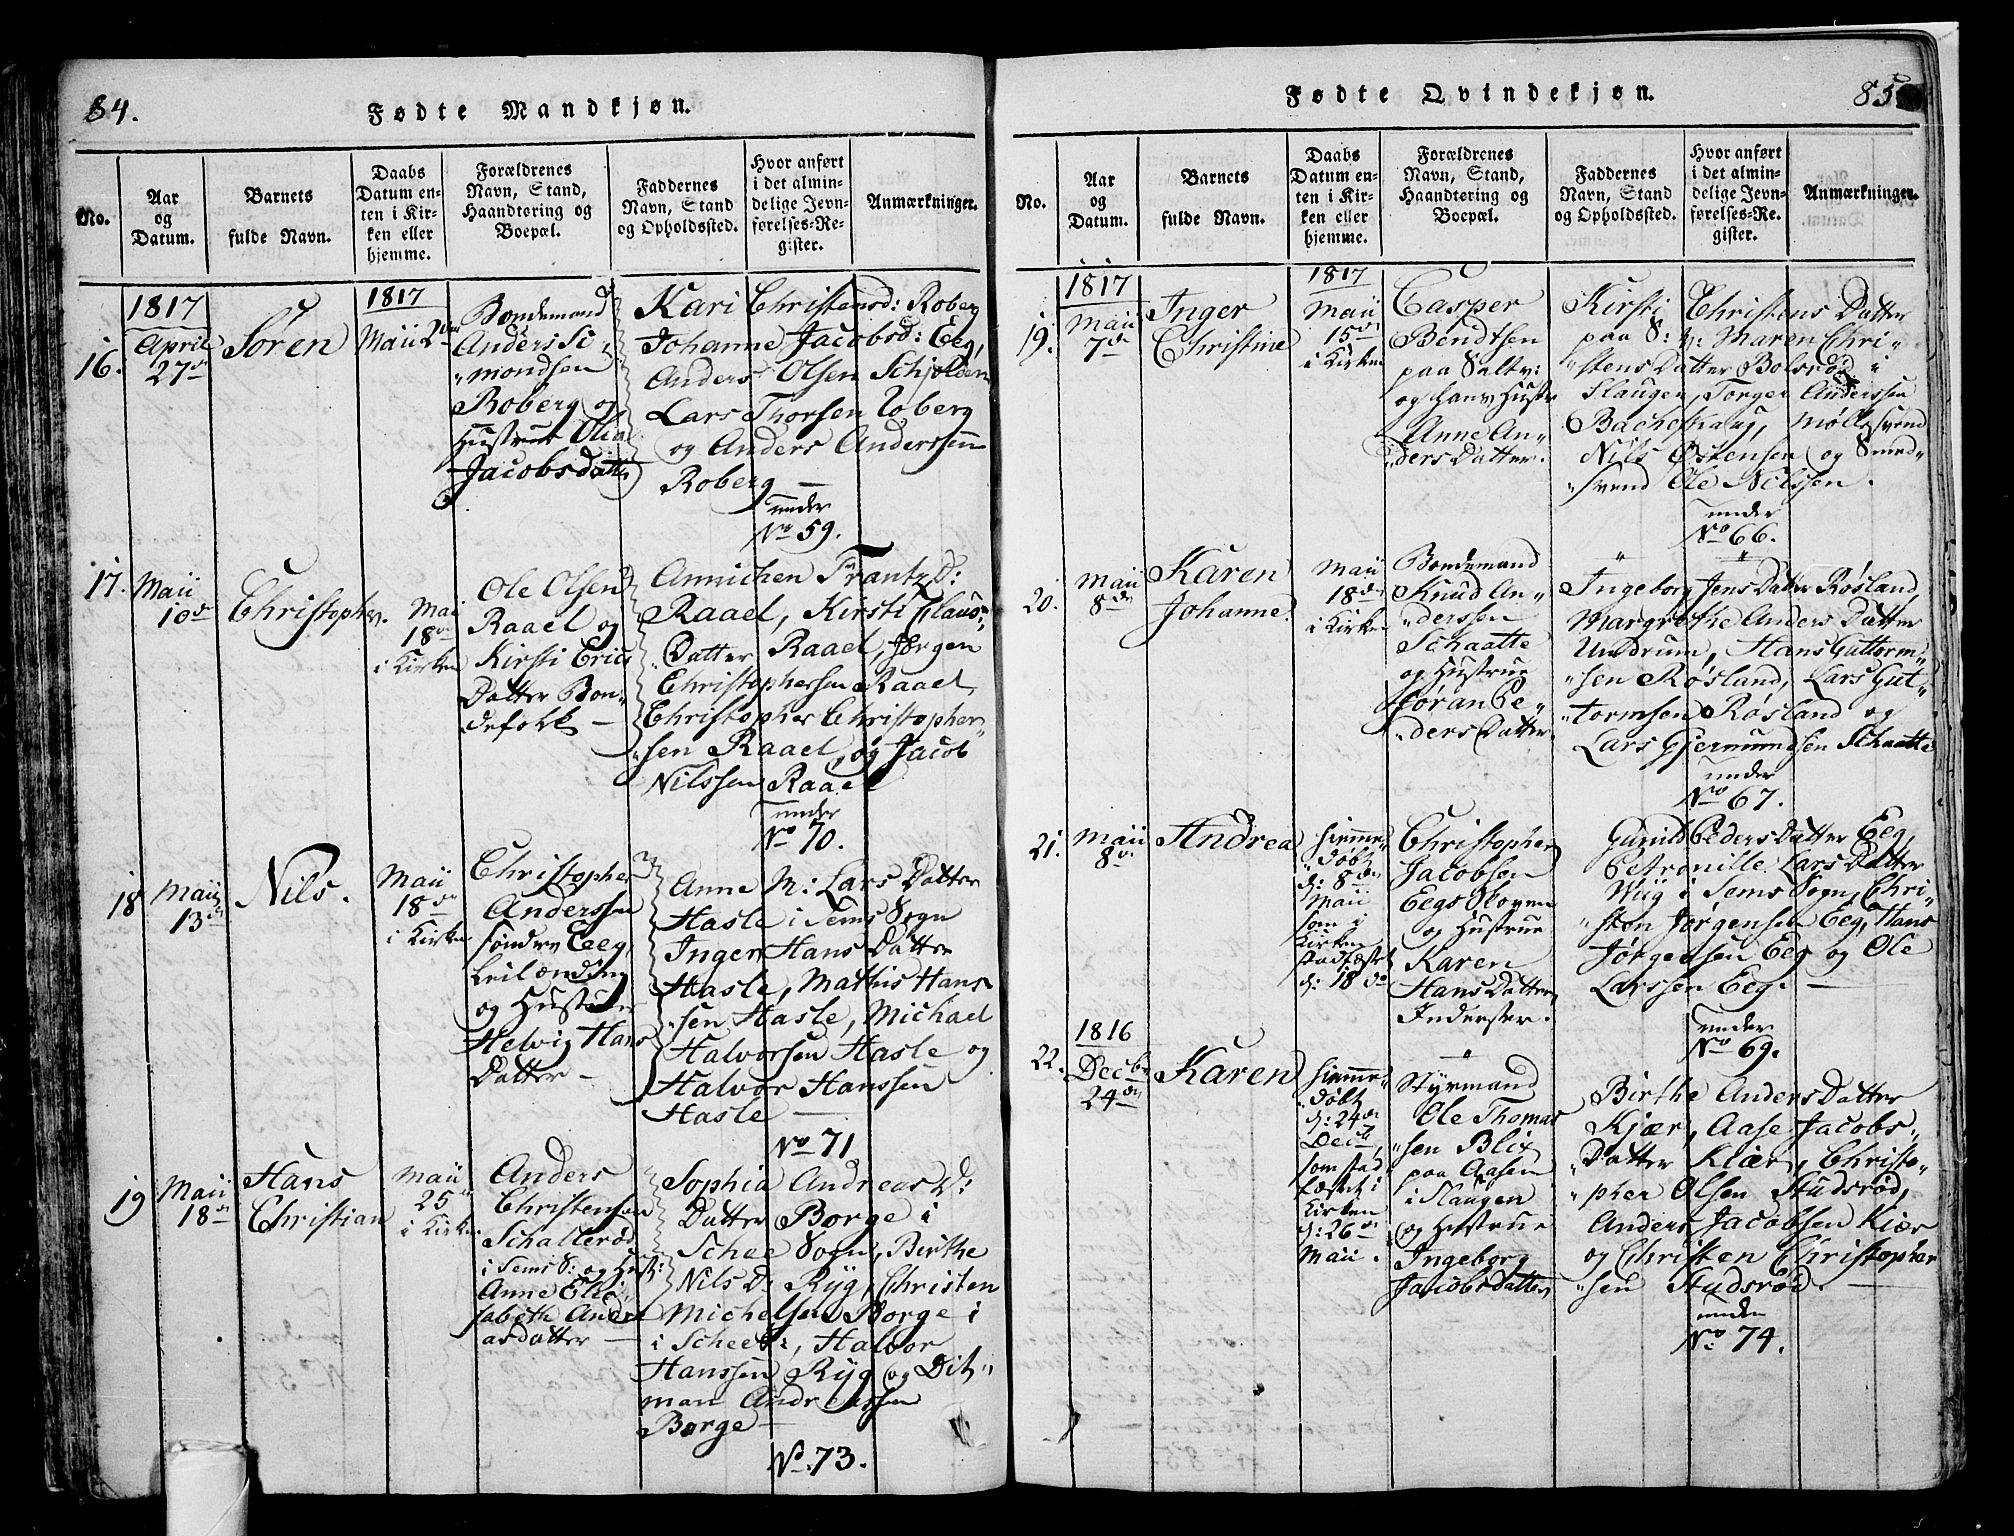 84.
Fødte Mandkjøn.
No.
Aar
og
Datum.
Barnets
fulde Navn.
Daabs
Datum en-
ten i Kir-
ken eller
hjemme.
Forældrenes
Navn, Stand,
Haandtering og
Boepæl.
Faddernes
Navn, Stand
og Opholdssted.
Hvor anført
i det almin-
delige Jevn-
førelses-Re-
gister.
Anmærkninger.
16.
1817
April
27de
Søren
1817
Maii 2den
Bondemand
Anders Si-
"mondsen
Roberg og
Hustrue Olia
Jacobsdatter
Kari Christensd: Roberg
Johanne Jacobsd: Eeg,
Anders Olsen Schjolden
Lars Thorsen Roberg
og Anders Anderssen
Roberg —
under
No 59.
17.
Maii
10de
Christopher.
Mai
18de
i Kirken
Ole Olsen
Raael og
Kirsti Erics
Datter Bon"
defolk —
Annichen Frantzd:
Raael, Kirsti Claus"
"Datter Raael, Jørgen
Christophersen Raael,
Christopher Christopher"
"sen Raael, og Jacob
Nilssen Raael
under
No 70.
18
Maii
13de
Nils.
Maii
18de
i Kirken
Christopher
Anderssen
søndre Eeg,
Leilænding
og Hustrue
Helvig Hans
Datter —
Anne M: Lars Datter
Hasle i Sems Sogn
Inger Hans Datter
Hasle, Mathis Hans"
"sen Hasle, Michael
Halvorsen Hasle og
Halvor Hanssen
Hasle —
No 71
19
Maii
18de
Hans
Christian
Maii
25
i Kirken
Anders
Christensen
Schallerød
i Sems S: og Hust:
Anne Eli-
sabeth Andre
asdatter —
Sophia Andreas D:
Datter Borge i
Schee Sogn, Birthe
Nils D: Ryg, Christen
Michelsen Borge i
i Schee S:, Halvor
Hanssen Ryg og Dit"
man Andreassen
Borge —
No. 73.
Fødte Qvindekjøn.
85
No.
Aar
og
Datum.
Barnets
fulde Navn.
Daabs
Datum en-
ten i Kir-
ken eller
hjemme.
Forældrenes
Navn, Stand,
Haandtering og
Boepæl.
Faddernes
Navn, Stand
og Opholdssted.
Hvor anført
i det almin-
delige Jevn-
førelses-Re-
gister.
Anmærkninger.
19.
1817
Maii
7de
Inger
Christine
1817
Maii
15de
i Kirken
Casper
Bendtsen
paa Saltv:
og hans Hustr
Anne An"
"ders Datter.
Kirsti Christens Datter
paa S: v: Maren Chri"
"stens Datter Bolsrød i
Slaugen, Torger Anderssen
Bacheskaug, Møllesvend
Nils Østensen og Smed"
"svend Ole Nilssen.
under
No 66.
20.
Maii
8de
Karen
Johanne.
Maii
18de
i Kirken
Bondemand
Knud An"
"derssen
Schaatte
og Hustrue
Jøran Pe"
"ders Datter.
Ingeborg Jens Datter Røsland,
Margrethe Anders Datter
Undrum, Hans Guttorm"
"sen Røsland, Lars Gut"
"tormsen Røsland og
Lars Gjermundsen Schaatte
under
No 67.
21.
Maii
8de
Andrea
hiemme"
"døbt
d: 8de
Maii
som i
Kirken
stadfæstet
d: 18de
Christopher
Jacobsen
Eegs Sloven
og Hustrue
Karen
Hans Datter,
Inderster.
Gunild Peders Datter Eeg,
Petronille Lars Datter
Wiig i Sems Sogn, Chri"
"sten Jørgensen Eeg, Hans
Jørgensen Eeg og Ole
Larssen Eeg. —
under
No 69.
22.
1816
Decbr
24de
Karen
hiemme"
"døbt
d: 24de
Decbr,
som stad
fæstet i
Kirken
d: 26de
Maii.
Styrmand
Ole Thomas
"sen Blix
paa Aasen
i Slaugen
og Hustrue
Ingeborg
Jacobsdatter
Birthe Anders Datter
Kjær, Aase Jacobs"
"Datter Kiær, Christo"
"pher Olsen Studsrød,
Anders Jacobsen Kiær
og Christen Christopher
"sen Studsrød. —
under
No 74.